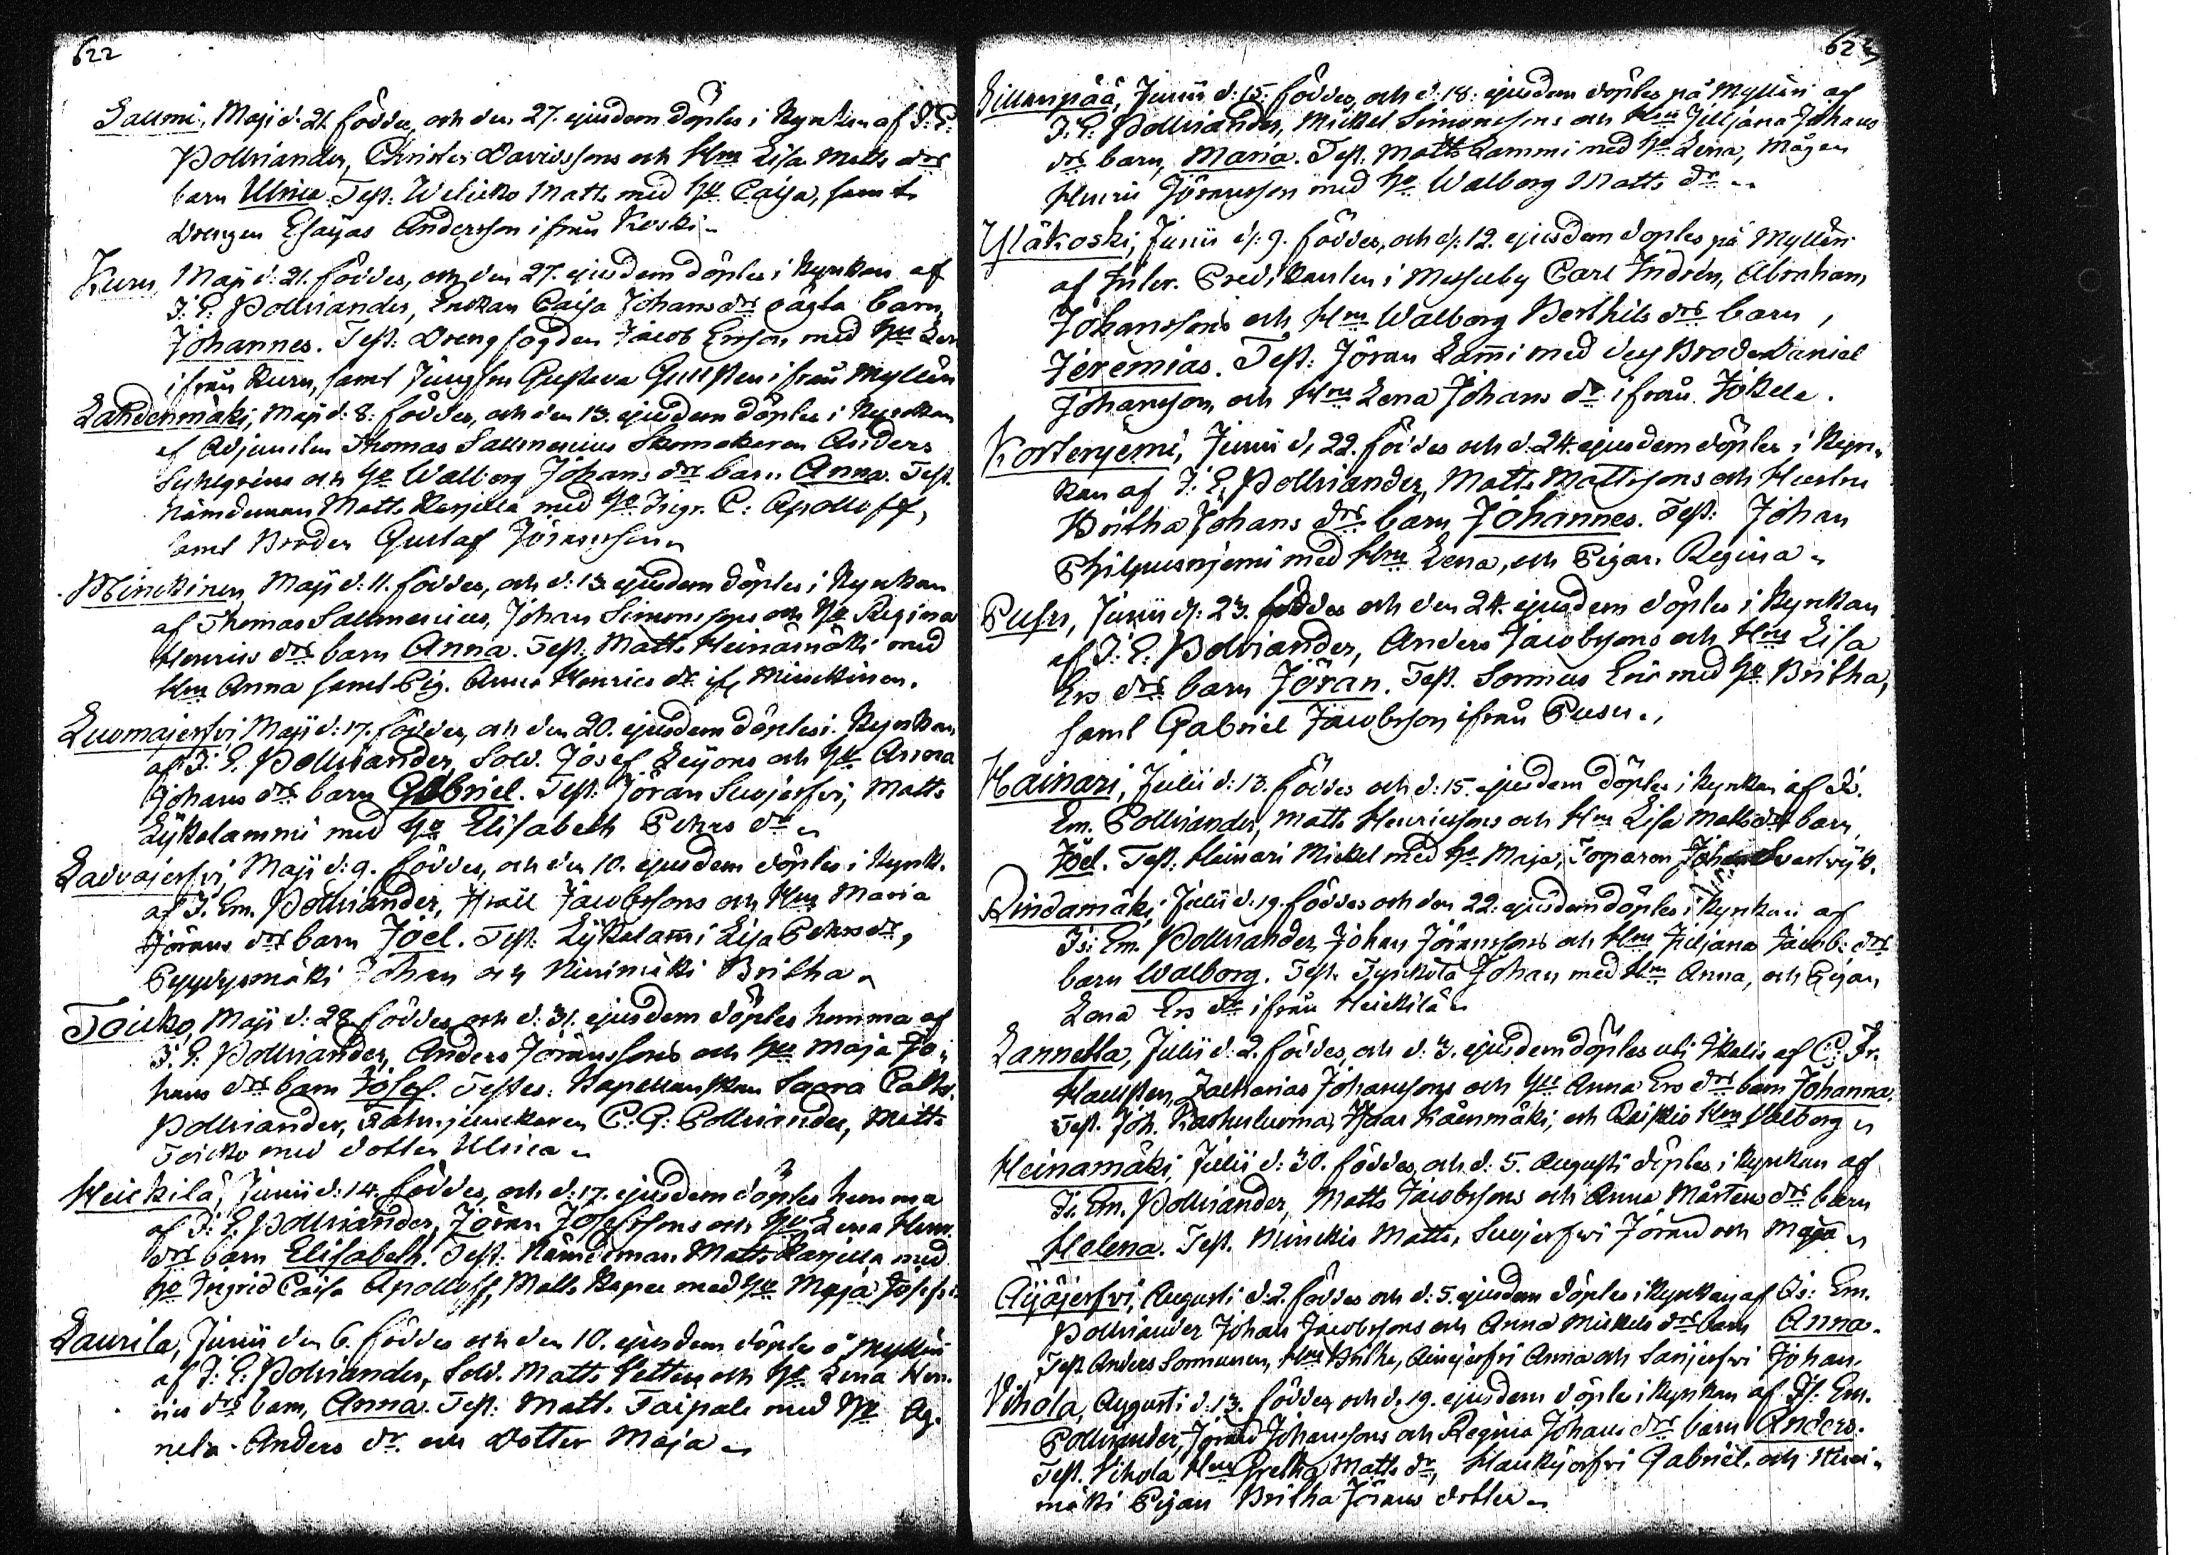 622
Lammi, Maji d. 21. föddes, och den 27. ejusdem döptes i Kyrkan af J: E:
Pollviander, Christer Davidssons och Hru Lisa Matts drs
barn Ulrica. Test. Welicko Matts med hu Caisa, samt
Drengen Esaijas Andersson ifrån Koski.
Kuru, Maji d: 21. föddes, och den 27. ejusdem döptes i Kyrkan af
J: E: Pollviander, Enckan Caisa Johans drs oägta barn,
Johannes. Test: Drengfogden Jacob Ersson med hu
ifrån Kuru, samt Jungfru Gustava ifrån Myllün
Lahdenmäki, Maji d: 8. föddes, och den 13. ejusdem döptes i Kyrckan
af Adjuncten Thomas Sallmenius Skomakaren Anders
och hu Walborg Johans drs barn Anna. Test.
Nämdeman Matts med hu Ingr. C: Apolloff,
samt Brodern Gustaf Jöransson
Minckinen, Maji d: 11. föddes, och d: 13. ejusdem döptes i Kyrkan
af Thomas Sallmenius, Johan Simonssons och hu Regina
Henrics drs barn Anna. Test. Matts Heinämäki med
Hru Anna samt Pig. Anna Henrics dr ifr Minckinen.
Luomajerfvi, Maji d: 17. föddes, och den 20. ejusdem döptes i Kyrkan
af J: E: Pollviander, Sold. Josef Leijons och hu Anna
Johans drs barn Gabriel. Test: Jöran Suojerfvi, Matts
Lykelammi med hu Elisabeth Pehrs dr
Ladvajerfvi, Maji d: 9. föddes, och den 10. ejusdem döptes i Kyrk.
af J. Em. Pollviander, Israel Jacobssons och Hru Maria
Jörans drs barn Joel. Test: Lykelammi Lisa Pehrs dr,
Pyydysmäki Johan och Niinimäki Britha
Toicko, Maji d: 28. föddes, och d: 31. ejusdem döptes hemma af
J. E: Pollviander, Anders Jöranssons och hu Maja Jo-
hans drs barn Josef. Testes: Kapellanskan Saara Cath.
Pollviander, Fahnjunckaren C. G: Pollviander, Matts
Toicko med dotter Ulrica
Heickilä, Junii d: 14. föddes, och d: 17. ejusdem döptes hemma
af J: E: Pollviander, Jöran Josefssons och hu Lena Henr.
drs barn Elisabeth. Test: Nämdeman Matts med
hu Ingrid Caisa Apolloff, Matts med hu Maja
Laurila, Junii den 6. föddes och den 10. ejusdem döptes å Myllün
af J: E: Pollviander, Sold. Matts Vetters och hu Lena Hen-
rics drs barn, Anna. Test: Matt. Taipale med hu Ag-
neta Anders dr. och Dotter Maja

623
Sillanpää, Junii d: 15. föddes, och d: 18: ejusdem döptes på Myllün af
J. E. Pollviander, Mickel Simonssons och Hru Juljana Johans
drs barn, Maria. Test. Matts Lammi med hu Lena, Mågen
Henric Jöransson med hu Walborg Matts dr
Yläkoski, Junii d: 9. föddes, och d: 12. ejusdem döptes på Myllün
af Predikanten i Messuby Carl Indrén, Abraham
Johanssons och Hru Walborg Berthils drs barn,
Jeremias. Test: Jöran Lami med dess Broder Daniel
Johansson, och Hru Lena Johans dr ifrån Jokela.
Kortenjemi, Junii d. 22. föddes och d. 24. ejusdem döptes i Kyr-
kan af J. E. Pollviander, Matts Mattssons och Hustru
Britha Johans drs barn Johannes. Test: Johan
Philpusnjemi med Hru Lena, och Pigan Regina
Pusu, Junii d: 23. föddes och den 24. ejusdem döptes i Kyrkan
af J: E: Pollviander, Anders Jacobssons och Hru Lisa
Ers drs barn Jöran. Test. Eric med hu Britha,
samt Gabriel Jacobsson ifrån Pusu.
Hainari, Julii d: 13. föddes och d: 15. ejusdem döptes i Kyrkan af Is.
Em. Pollviander, Matts Henricssons och Hru Lisa Matts drs barn,
Joel. Test: Heinari Mickel med hu Maja, Johan
Rindamäki, Julii d. 19. föddes och den 22. ejusdem döptes i Kyrkan af
Is: Em. Pollviander, Johan Jöranssons och Hru Juljana Jacob: drs
barn Walborg. Test. Johan med Hru Anna, och Pigan
Lena Ers dr ifrån Heickilä
Lannetta, Julii d: 2. föddes, och d: 3. ejusdem döptes uti af C: Fr.
Hallsten, Zacharias Johanssons och hu Anna Ers drs barn Johanna.
Test. Joh. Isaac och Hru Valborg
Heinämäki, Julii d: 30. föddes, och d: 5. Augusti döptes i Kyrkan af
Is. Em. Pollviander, Matts Jacobssons och Anna Mårtens drs barn
Helena. Test. Minckis Matts, Suojerfvi Jöran och Maja
Äijäjerfvi, Augusti d. 2. föddes och d: 5. ejusdem döptes i Kyrkan af Is: Em.
Pollviander Johan Jacobssons och Anna Mickels drs barn Anna.
Test. Anders Sormunen, Hru Britha, Anna och Sarijerfvi Johan.
Vihola, Augusti d: 13. föddes och d. 19. ejusdem döptes i Kyrkan af Is: Em.
Pollviander, Jöran Johanssons och Regina Johans drs barn Anders.
Test. Vihola Hru Gretha Matts dr, Haukijerfvi Gabriel. och
mäki Pigan Britha Jörans dotter